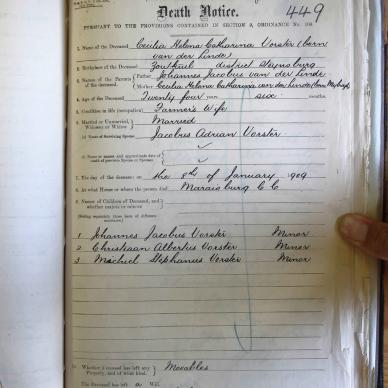 Death Notice.
449
PURSUANT TO THE PROVISIONS CONTAINED IN SECTION 9, ORDINANCE No. 104
1. Name of the Deceased Cecilia Helena Catharina Vorster (born
van der Linde)
2. Birthplace of the Deceased district Steynsburg
3. Names of the Parents of the deceased. Father Johannes Jacobus van der Linde
Mother Cecilia Helena Catharina van der Linde (born
4. Age of the Deceased Twenty four years six months
5. Condition in life (occupation) Farmer's Wife
6. Married or Unmarried, Widower or Widow Married
(a) Name of Surviving Spouse Jacobus Adrian Vorster
(b) Name or names and approximate date of death of previous Spouse or Spouses
7. The day of the decease: on the 8th of January 1909
8. At what House or where the person died Maraisburg C C
9. Names of Children of Deceased, and whether majors or minors
(Stating separately those born of different marriages)
1 Johannes Jacobus Vorster Minor
2 Christiaan Albertus Vorster Minor
3 Michiel Stephanus Vorster Minor
10. Whether deceased has left any Property, and of what kind. Movables
The Deceased has left a Will.